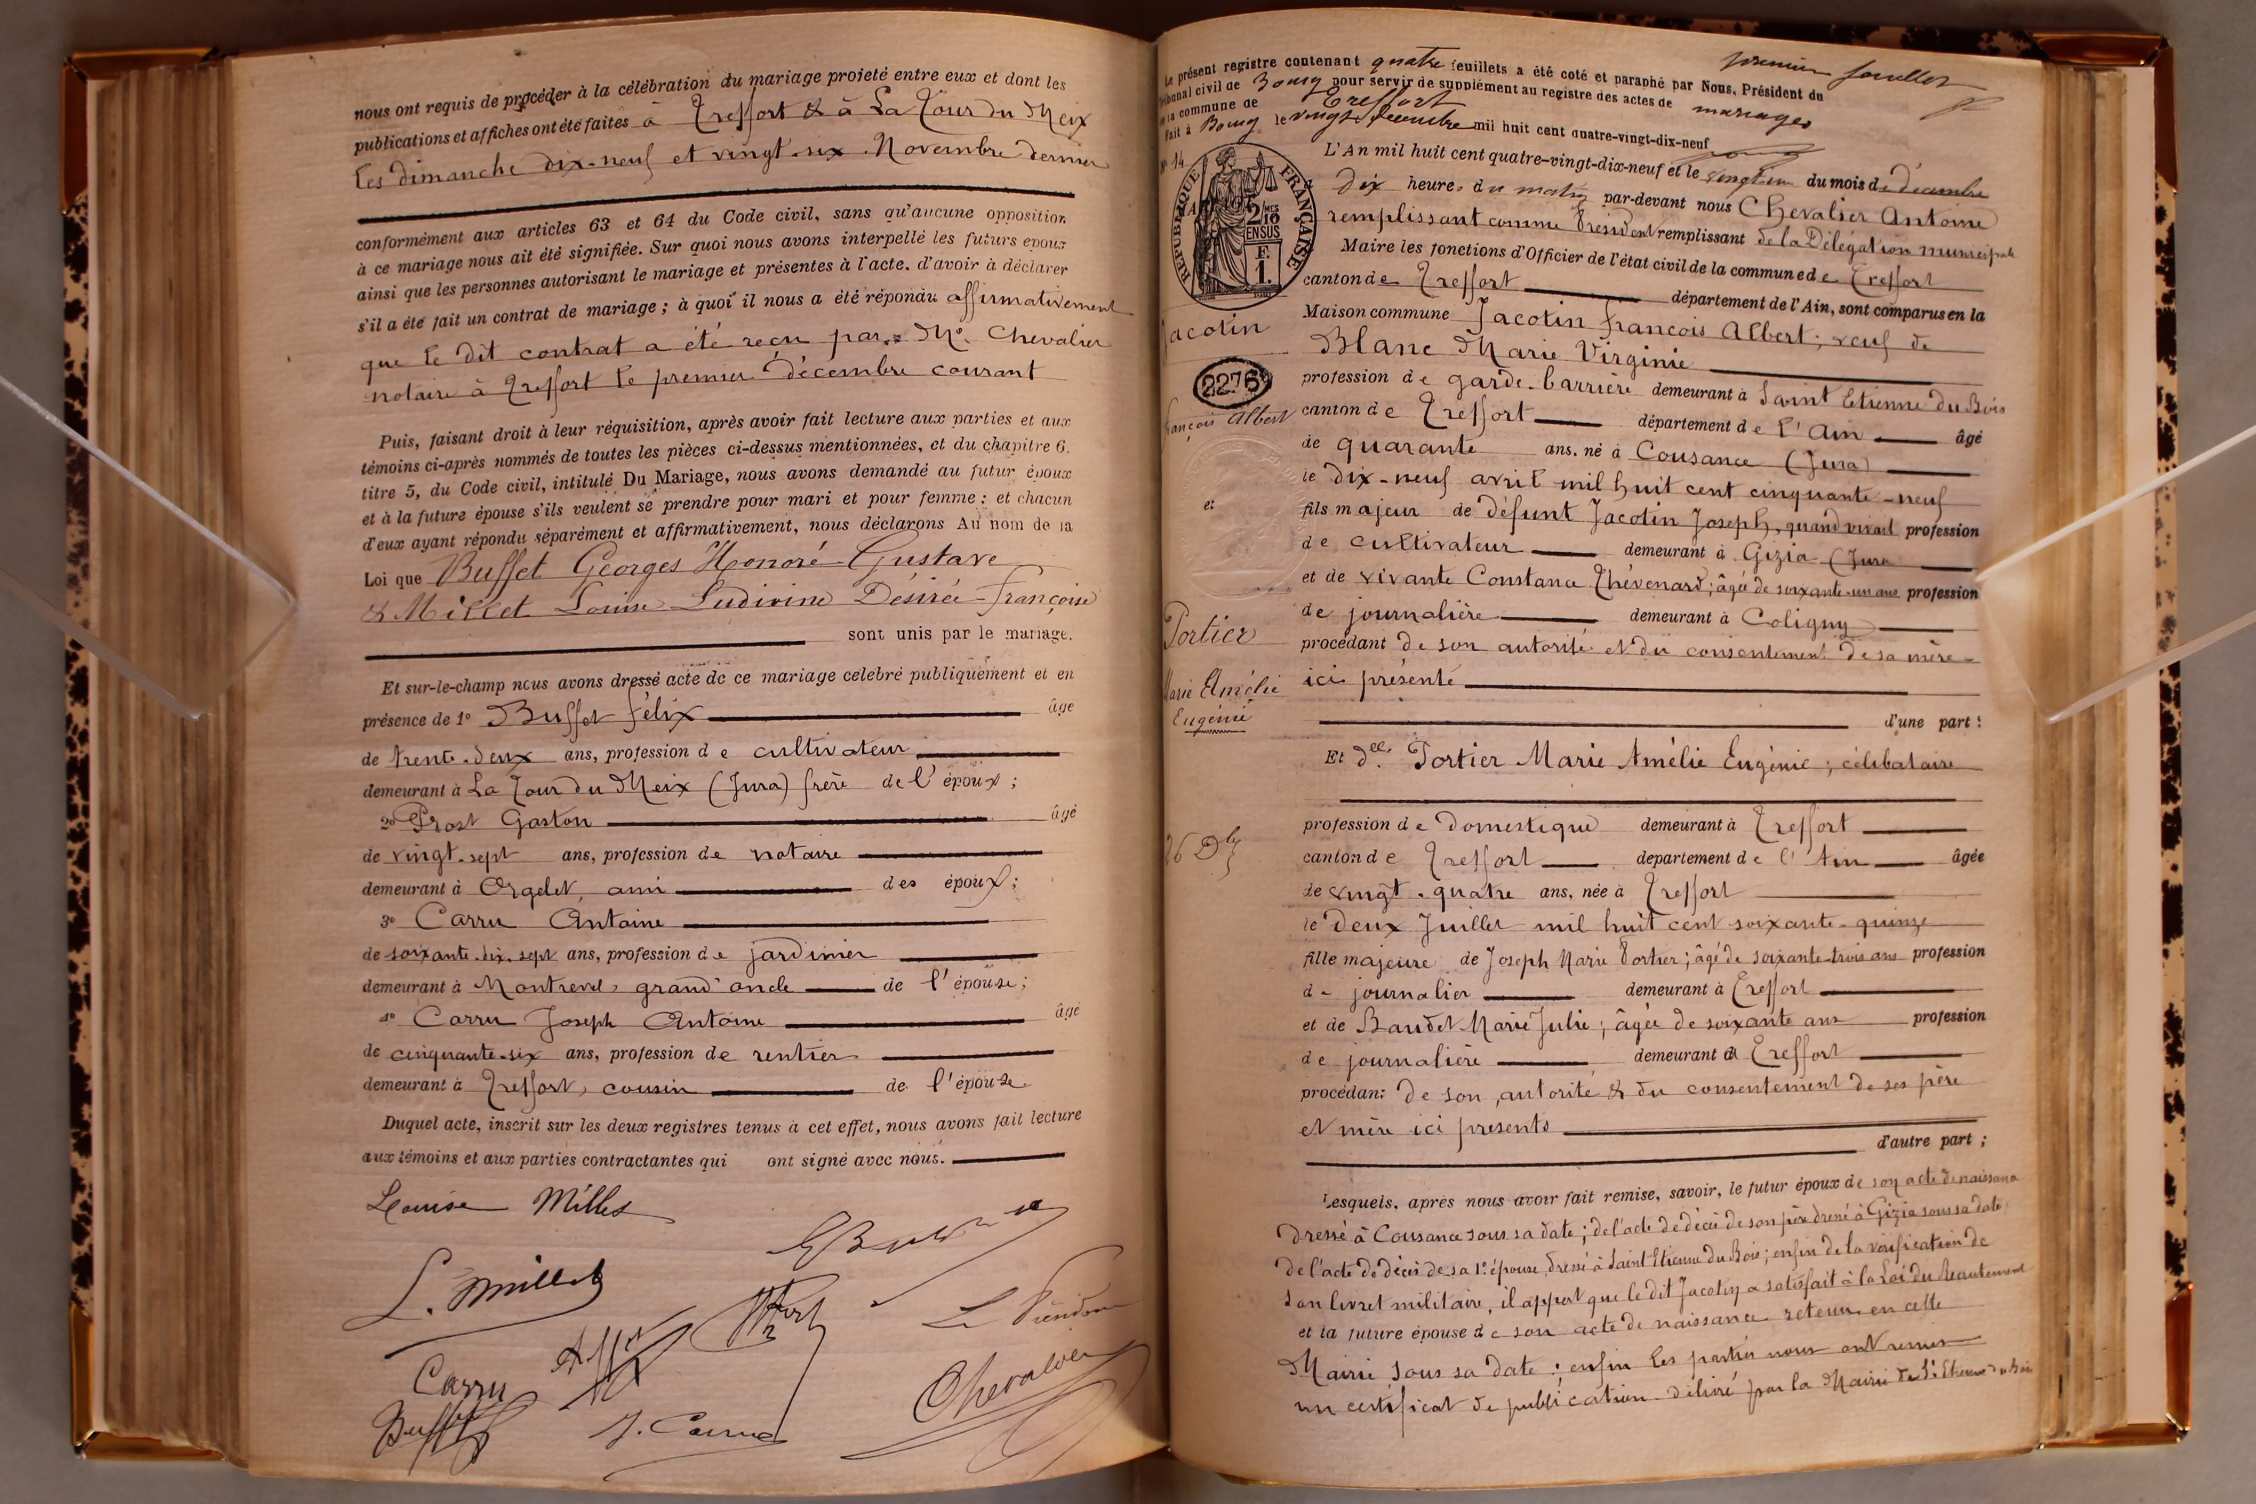 nous ont requis de procéder à la célébration du mariage projeté entre eux et dont les
publications et affiches ont été faites à Treffort & à La Tour du Meix
les dimanche dix-neuf et vingt-six Novembre dernier
conformément aux articles 63 et 64 du Code civil, sans qu'aucune opposition
à ce mariage nous ait été signifiée. Sur quoi nous avons interpellé les futurs époux
ainsi que les personnes autorisant le mariage et présentes à l'acte, d'avoir à déclarer
s'il a été fait un contrat de mariage ; à quoi il nous a été répondu affirmativement
que le dit contrat a été reçu par Me. Chevalier
notaire à Treffort le premier Décembre courant
Puis, faisant droit à leur réquisition, après avoir fait lecture aux parties et aux
témoins ci-après nommés de toutes les pièces ci-dessus mentionnées, et du chapitre 6.
titre 5, du Code civil, intitulé Du Mariage, nous avons demandé au futur époux
et à la future épouse s'ils veulent se prendre pour mari et pour femme ; et chacun
d'eux ayant répondu séparément et affirmativement, nous déclarons Au nom de la
Loi que Buffet Georges Honoré Gustave
& Millet Louise Ludivine Désirée-Françoise
sont unis par le mariage.
Et sur-le-champ nous avons dressé acte de ce mariage célébré publiquement et en
présence de 1° Buffet Félix âgé
de trente-deux ans, profession de cultivateur
demeurant à La Tour du Meix (Jura) frère de l'époux ;
2° Prost Gaston âgé
de vingt-sept ans, profession de notaire
demeurant à Orgelet, ami des époux ;
3° Carru Antoine
de soixante-dix-sept ans, profession de jardinier
demeurant à Montrevel, grand'oncle de l'épouse ;
4° Carru Joseph Antoine âgé
de cinquante-six ans, profession de rentier
demeurant à Treffort, cousin de l'épouse
Duquel acte, inscrit sur les deux registres tenus à cet effet, nous avons fait lecture
aux témoins et aux parties contractantes qui ont signé avec nous.
Louise Millet
L. Millet
Le Président
Carru
Buffet
J. Carru
Chevalier
premier feuillet
Le présent registre contenant quatre feuillets a été coté et paraphé par Nous, Président du
Tribunal civil de Bourg pour servir de supplément au registre des actes de mariages
de la commune de Treffort
Fait à Bourg le vingt décembre mil huit cent quatre-vingt-dix-neuf
N° 14
RÉPUBLIQUE FRANÇAISE
2/10 EN SUS
F. 1.
L'An mil huit cent quatre-vingt-dix-neuf et le vingt-un du mois de décembre
à dix heures du matin par-devant nous Chevalier Antoine
remplissant comme Président remplissant de la Délégation municipale
Maire les fonctions d'Officier de l'état civil de la commune de Treffort
canton de Treffort département de l'Ain, sont comparus en la
Jacotin
Maison commune Jacotin François Albert ; veuf de
Blanc Marie Virginie
2276
profession de garde-barrière demeurant à Saint Etienne du Bois
François Albert
canton de Treffort département de l'Ain âgé
de quarante ans, né à Cousance (Jura)
le dix-neuf avril mil huit cent cinquante-neuf
et
fils majeur de défunt Jacotin Joseph, quand vivait profession
de cultivateur demeurant à Gizia (Jura
et de vivante Constance Thévenard ; âgée de soixante-un ans profession
de journalière demeurant à Coligny
Portier
procédant de son autorité et du consentement de sa mère
Marie Amélie
ici présente
Eugénie
d'une part ;
Et dlle. Portier Marie Amélie Eugénie ; célibataire
profession de domestique demeurant à Treffort
canton de Treffort département de l'Ain âgée
de vingt-quatre ans, née à Treffort
le deux Juillet mil huit cent soixante-quinze
fille majeure de Joseph Marie Portier ; âgé de soixante-trois ans profession
de journalier demeurant à Treffort
et de Baudet Marie Julie ; âgée de soixante ans profession
de journalière demeurant à Treffort
procédant de son autorité & du consentement de ses père
et mère ici présents
d'autre part ;
Lesquels, après nous avoir fait remise, savoir, le futur époux de son acte de naissance
dressé à Cousance sous sa date ; de l'acte de décès de son père dressé à Gizia sous sa date
de l'acte de décès de sa 1e épouse, dressé à Saint Etienne du Bois ; enfin de la vérification de
son livret militaire, il appert que le dit Jacotin a satisfait à la Loi du Recrutement
et la future épouse de son acte de naissance retenu en cette
Mairie sous sa date ; enfin les parties nous ont remis
un certificat de publication délivré par la Mairie de St. Etienne du Bois